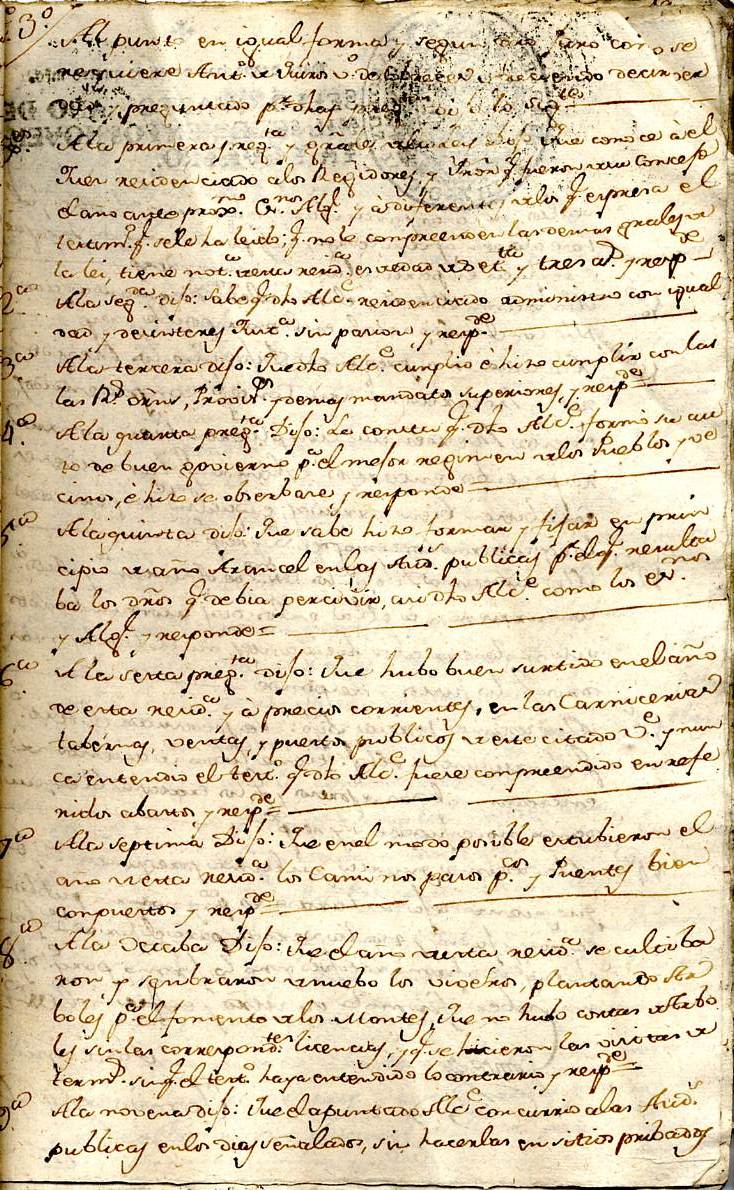 3º
Al punto en igual forma y segun otro juro como se
requiere Antº de v.º de
y preguntado pr dhas preg.s dijo lo sigte
A la primera preg.ta y grales dijo: Que conoce â el
Juez residenciado alos Regidores, y Prôn q.e fueron de su Concejo
el año antep.º prox.mo Es.nos Alg.l y â diferentes de los q.e expresa el
testim.º q.e se le ha leido; q.e no le conpreenden las demas grales de
la lei, tiene not.a de esta resid.a es vedad de et.ta y tres a.s y resp.de
2ª
A la seg.da dijo: sabe q.e dho Alc.e residenciado administro con igual
dad y desinteres Just.a sin pasion y resp.de
3ª
A la tercera dijo: Que dho Alc.e cumplio è hizo cumplir con las
las R.s orñs, Provi.s y demas mandatos superiores, y resp.de
4ª
A la quarta preg.ta Dijo: Le consta q.e dho Alc.e formó su au
to de buen govierno p.a el mejor regimen de los Pueblos y ve
cinos, è hizo se observare y responde=
5ª
A la quinta dijo: Que sabe hizo formar y fijar en prin
cipio de año Arancel en las Aud.s publicas p.r el q.e resulta
ba los dr̃os q.e debia percivir, asi dho Alc.e como los es.nos
y Alg.l y responde=
6ª
A la sexta preg.ta dijo: Que hubo buen surtido en el año
de esta resid.a y â precios corrientes, en las Carnicerias
tabernas, ventas, y puestos publicos de este citado V.e y nun
ca entendio el test.º q.e dho Alc.e fuese conpreendido en refe
ridos abastos y resp.de=
7ª
A la septima Dijo: Que en el modo posible estubieron el
año de esta resid.a los Caminos pasos p.cos y Puentes bien
conpuestos y resp.de=
8ª
A la octaba Dijo: Que el año de esta resid.a se cultiba
ron y senbraron de nuebo los viveros, plantando Ar
boles p.a el fomento de los Montes, Que no hubo cortas de Arbo
les sin las correspond.tes licencias, y q.e se hicieron las visitas de
term.s sin q.e el test.º haya entendido lo contrario y resp.de=
9ª
A la novena dijo: Que el apuntado Alc.e concurrio a las Aud.s
publicas en los dias señalados, sin hacerlas en sitios pribados